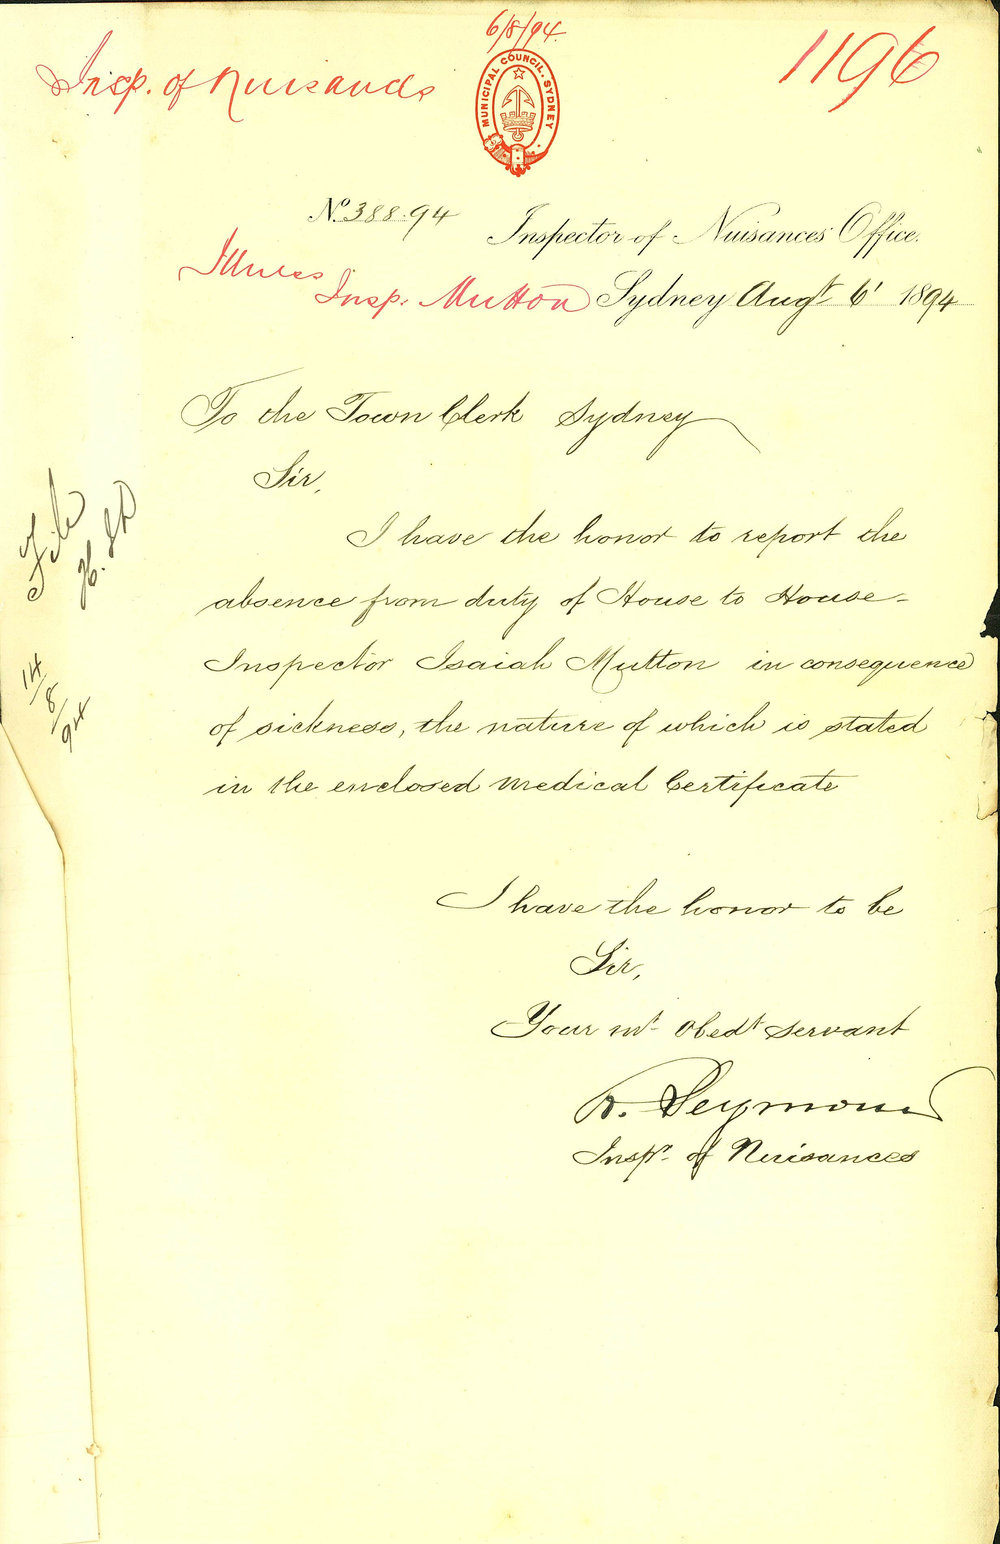 6/8/94.
Insp. of Nuisances
1196
MUNICIPAL COUNCIL. SYDNEY
No. 388.94
Inspector of Nuisances Office.
Illness
Insp. Mutton
Sydney Augt 6' 1894
To the Town Clerk Sydney
Sir,
I have the honor to report the
absence from duty of House to House-
Inspector Isaiah Mutton in consequence
of sickness, the nature of which is stated
in the enclosed medical Certificate
File
14/8/94
I have the honor to be
Sir,
Your mt Obedt Servant
R. Seymour
Inspr. of Nuisances